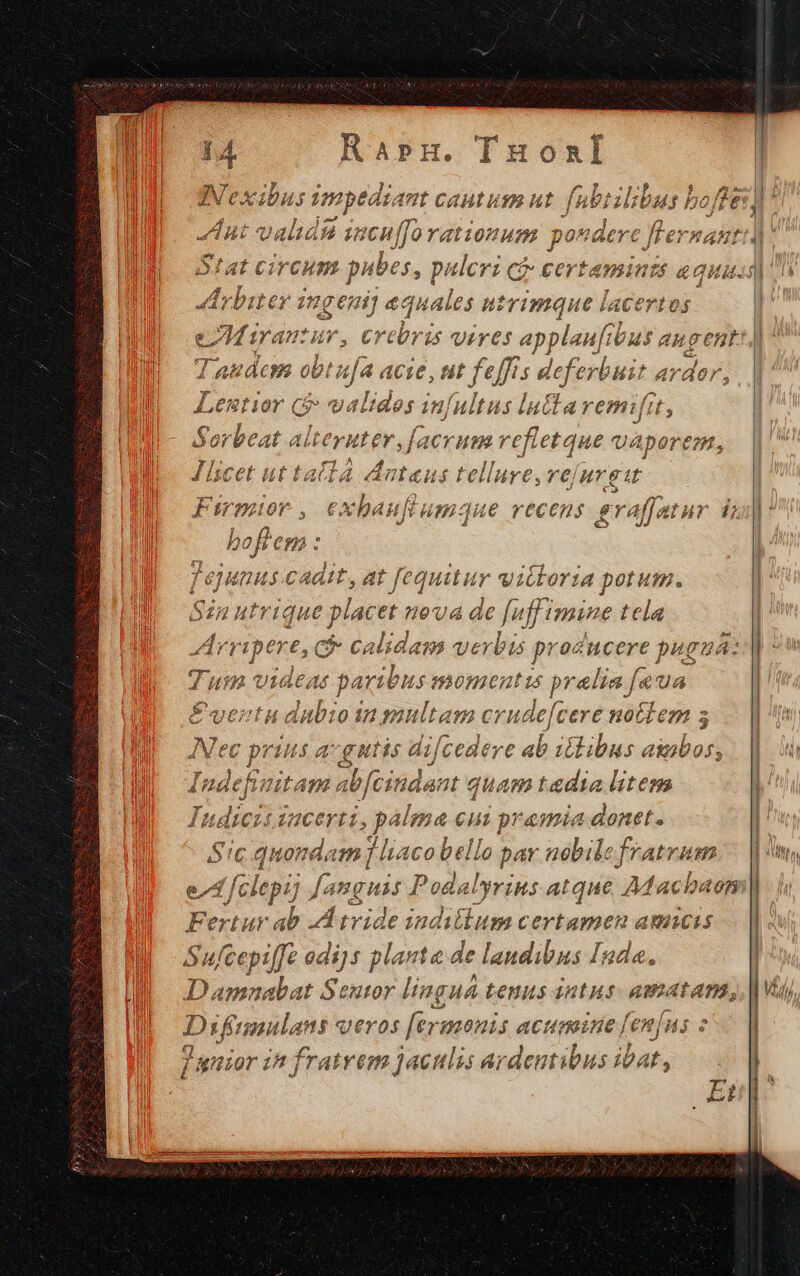 14 RAPH. THORI
Nexibus impediant cautum ut ſubtilibus hoſtẽ:
Aut validũ incuſſo rationum pondere ſternant:
Stat circum pubes, pulcri & certaminis æquus
Arbiter ingenij æquales utrimque lacertos
Mirantur, crebris vires applauſibus augent:
Tandem obtuſa acie, ut feſſis deferbuit ardor,
Lentior & validos inſultus luctaremiſit,
Sorbeat alteruter, ſacrum refletque vaporem,
Ilicet ut tactâ Antæus tellure, reſurgit
Firmior, exhauſtumque recens graſſatur in
hoſtem:
Jejunus cadit, at ſequitur victoria potum.
Sin utrique placet nova de ſuffimine tela
Arripere, & calidam verbis producere pugnã:
Tum videas paribus momentis prælia ſæva
Eventu dubio in multam crudeſcere noctem;
Nec prius argutis diſcedere ab ictibus ambos,
Indefinitam abſcindant quam tædia litem
Iudicis incerti, palmæ cui præmia donet.
Sic quondam Iliaco bello par nobile fratrum
Æſclepij ſanguis Podalyrius atque Machaom
Fertur ab Atride indictum certamen amicis
Suſcepiſſe odijs plantæ de laudibus Indæ.
Damnabat Senior linguâ tenus intus amatam,
Diſſimulans veros ſermonis acumine ſenſus:
Junior in fratrem jaculis ardentibus ibat,
Et